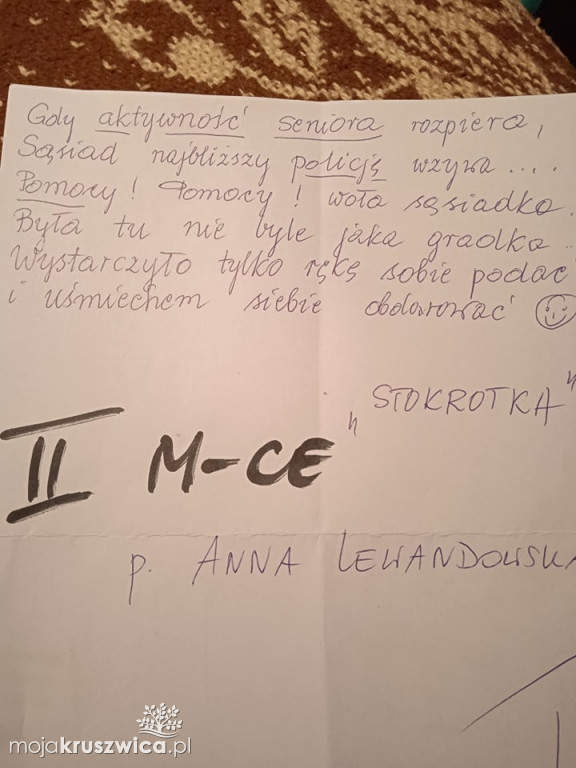 Gdy aktywność seniora rozpiera,
Sąsiad najbliższy policję wzywa....
Pomocy! Pomocy! woła sąsiadka.
Była tu nie byle jaka gradka..
Wystarczyło tylko rękę sobie podać
i uśmiechem siebie obdarować
"STOKROTKA"
II M-CE
p. ANNA LEWANDOWSKA
mojakruszwica.pl